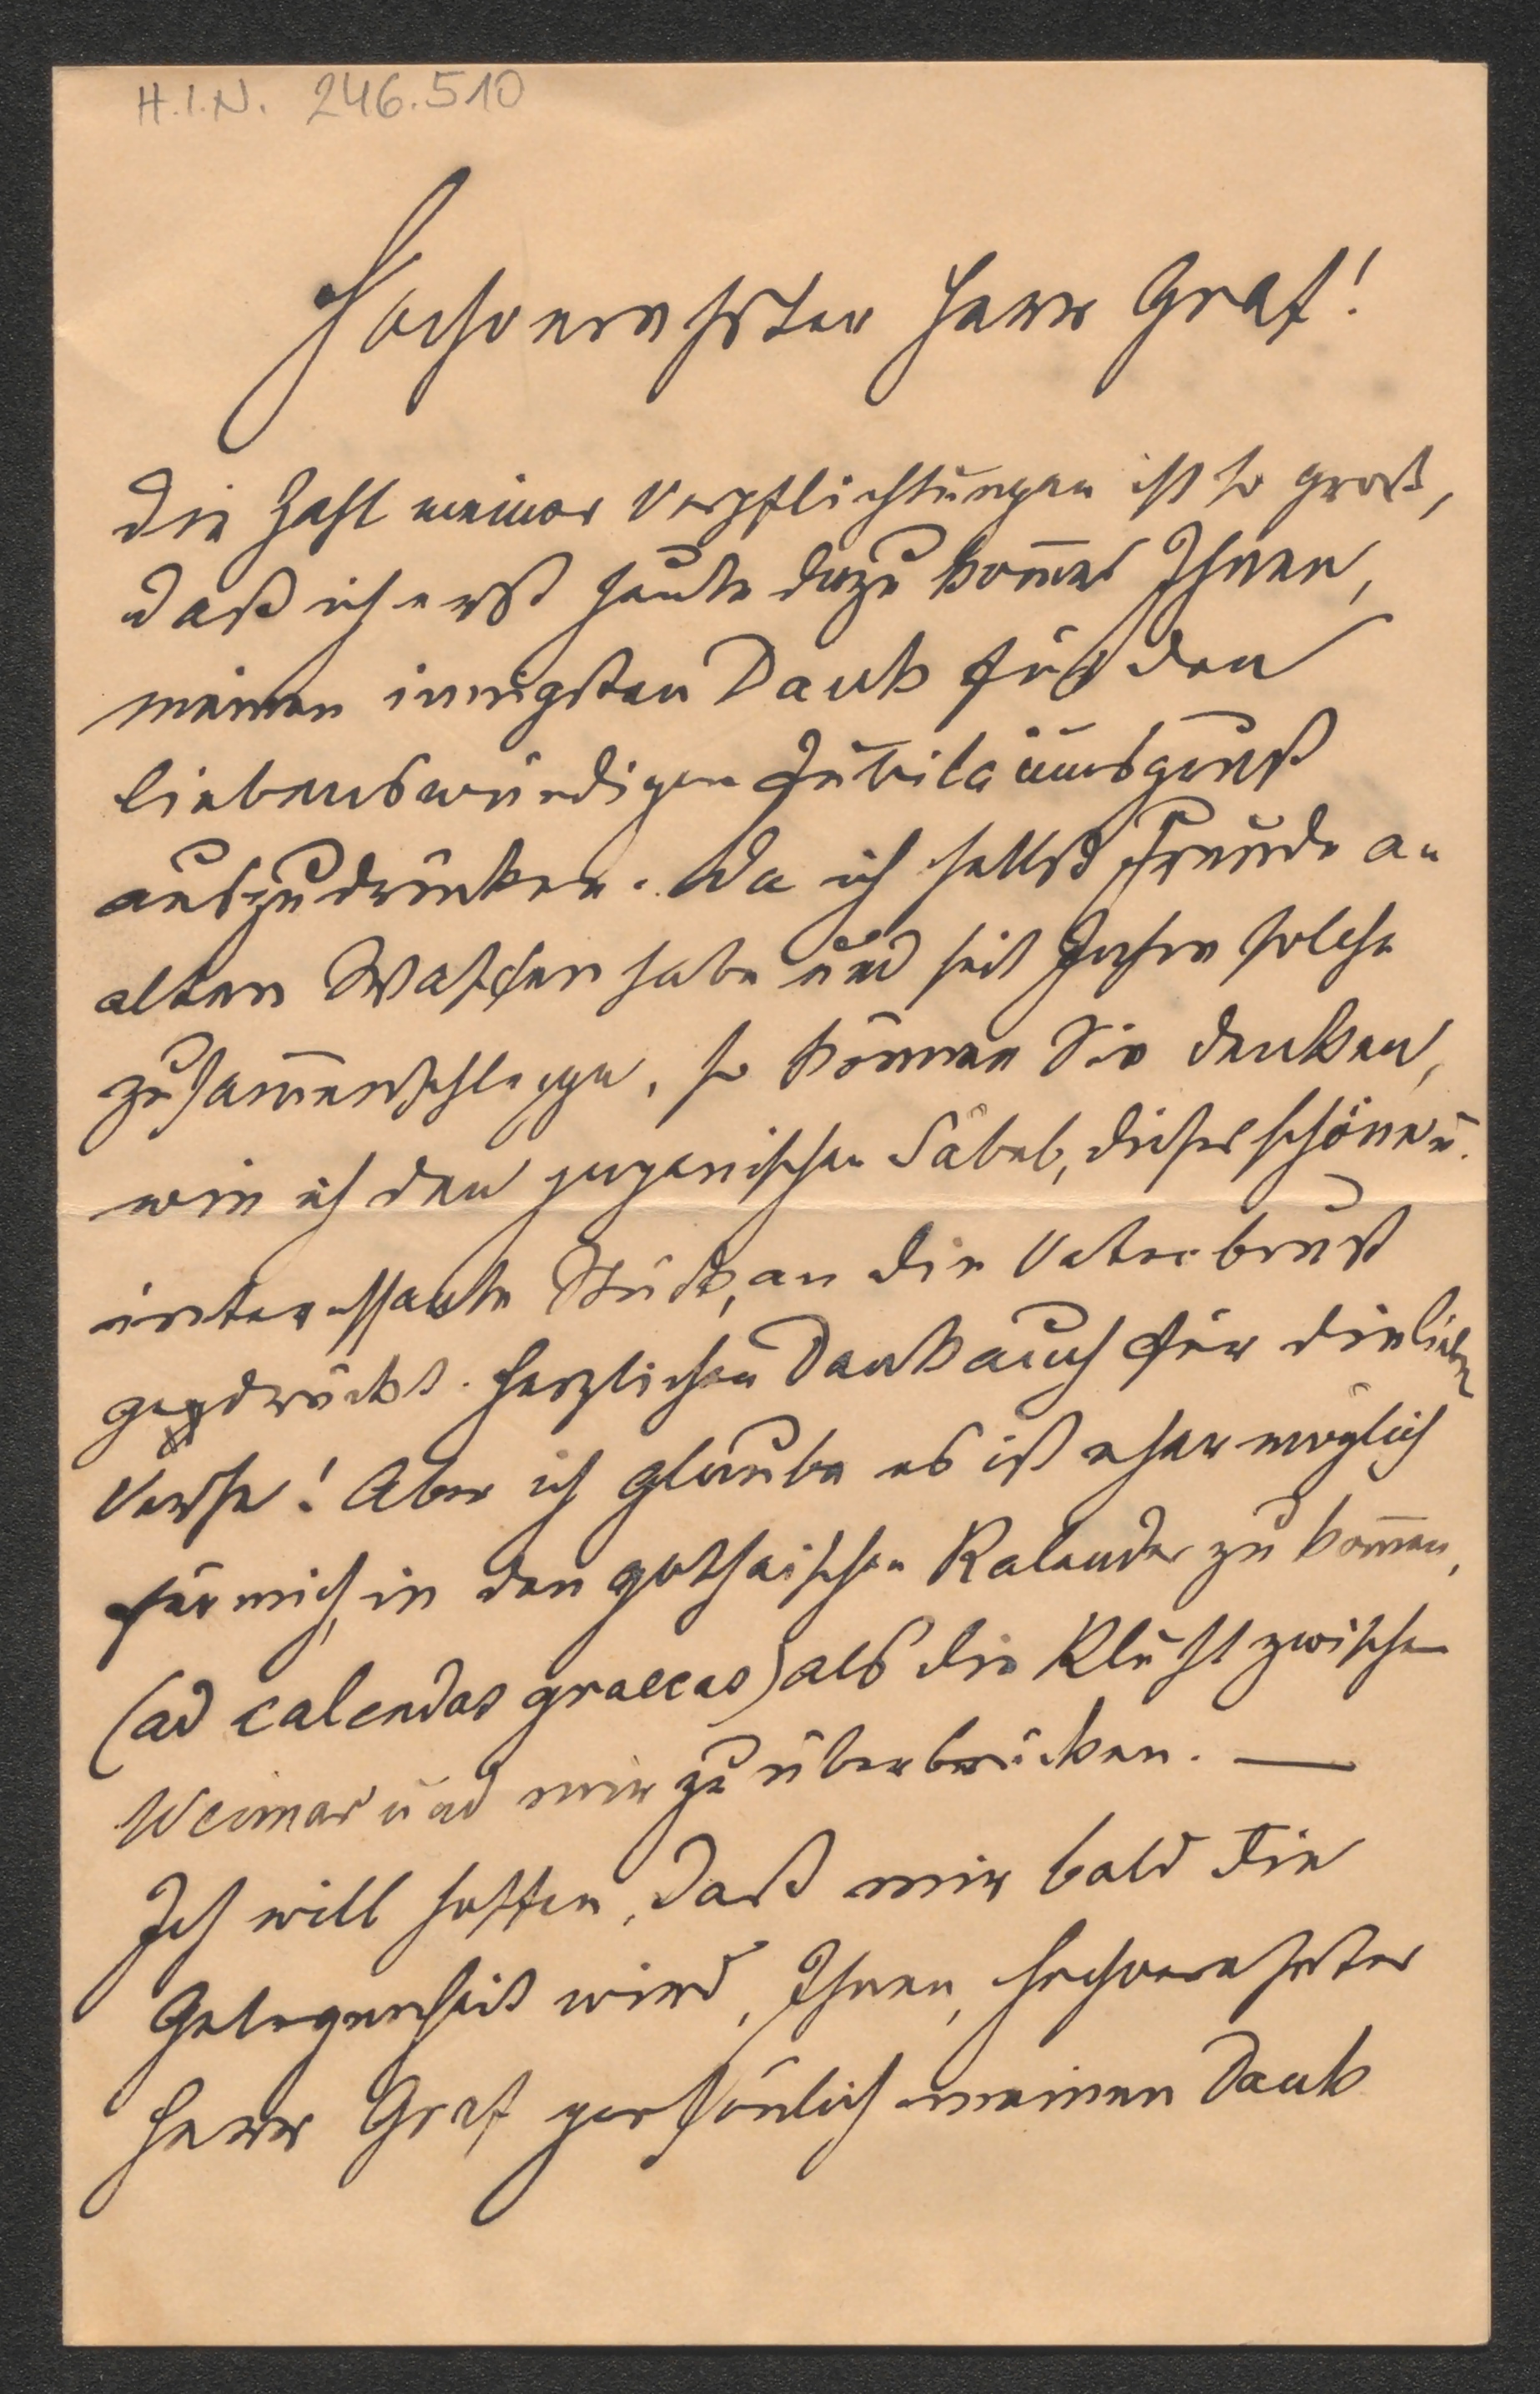 H.I.N. 246.510
Hochverehrter Herr Graf!
Die Zahl meiner Verpflichtungen ist so groß,
daß ich erst heute dazu kom̅e Ihnen,
meinen innigsten Dank für den
liebenswürdigen Jubiläumsgruß
auszudrücken. Da ich selbst Freude an
alten Waffen habe und seit Jahren solche
zusam̅enschleppe, so können Sie denken,
wie ich den japanischen Säbel, dieses schöne u.
interessante Stück, an die Vaterbrust
gedrückt. Herzlichen Dank auch für die lieben
Verse! Aber ich glaube es ist eher möglich
für mich, in den gothaischen Kalender zu kom̅en,
(ad calendas graecas) als die Kluft zwischen
Weimar und mir zu überbrücken. —
Ich will hoffen, daß mir bald die
Gelegenheit wird, Ihnen, hochverehrter
Herr Graf persönlich meinen Dank